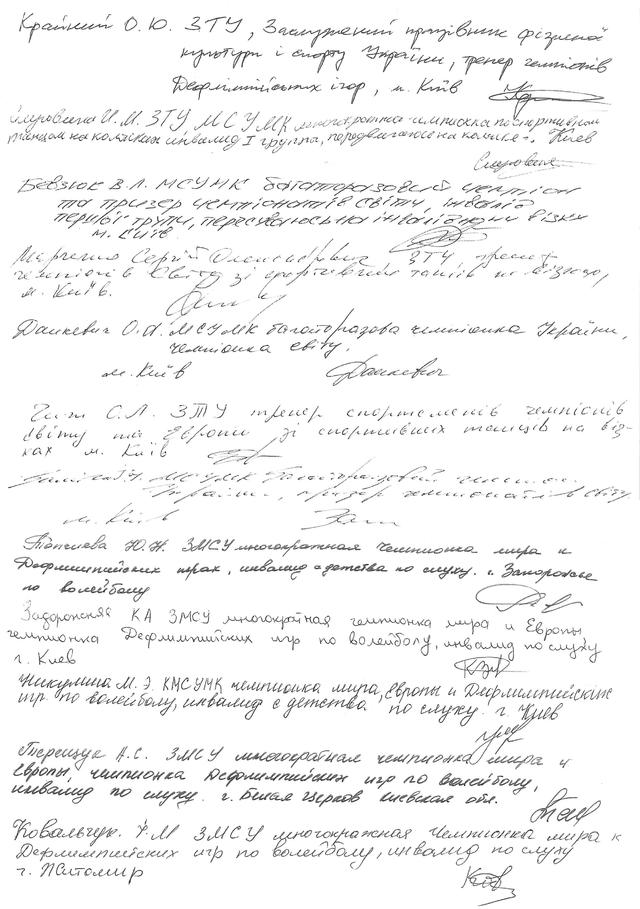 Крайний О.Ю. ЗТУ, Заслужений працівник фізичної
культури і спорту України, тренер чемпіонів
Дефлімпійських ігор, м. Київ
И.М. ЗТУ, МСУМК многократная чемпионка по спортивным
танцам на колясках инвалид I группа, передвигаюсь на коляске. Киев
Бевзюк В.Л. МСУМК багаторазовий чемпіон
та призер чемпіонатів світу, інвалід
першої групи, пересуваюсь на інвалідному візку
м. Київ.
Сергій Олександрович ЗТУ, тренер
чемпіонів Світу зі спортивних танців на візках,
м. Київ.
Данкевич О.А. МСУМК багаторазова чемпіонка України,
чемпіонка світу.
м. Київ Данкевич
С.Л. ЗТУ тренер спортсменів чемпіонів
світу та Європи зі спортивних танців на віз-
ках м. Київ
МСУМК багаторазовий чемпіон
України, призер чемпіонатів світу.
м. Київ
Ю.Н. ЗМСУ многократная чемпионка мира и
Дефлимпийских играх, инвалид с детства по слуху. г. Запорожье
по волейболу
Задорожняя КА ЗМСУ многократная чемпионка мира и Европы,
чемпионка Дефлимпийских игр по волейболу, инвалид по слуху
г. Киев
Никулина М.Э. КМСУМК чемпионка мира, Европы и Дефлимпийских
игр по волейболу, инвалид с детства по слуху. г. Киев
Терещук А.С. ЗМСУ многократная чемпионка мира и
Европы, чемпионка Дефлимпийских игр по волейболу,
инвалид по слуху. г. Белая Церков киевская обл.
Ковальчук. ЗМСУ многократная чемпионка мира и
Дефлимпийских игр по волейболу, инвалид по слуху
г. Житомир